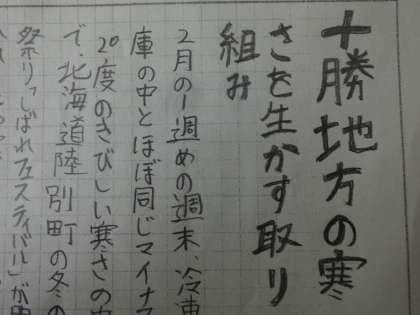 十勝地方の寒
さを生かす取り
組み
2月の1週めの週末、冷凍
庫の中とほぼ同じマイナス
20度のきびしい寒さの中
で、北海道陸別町の冬の
祭り「しばれフェスティバル」が